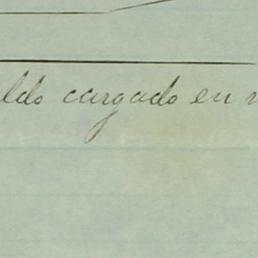 ldo cargado en